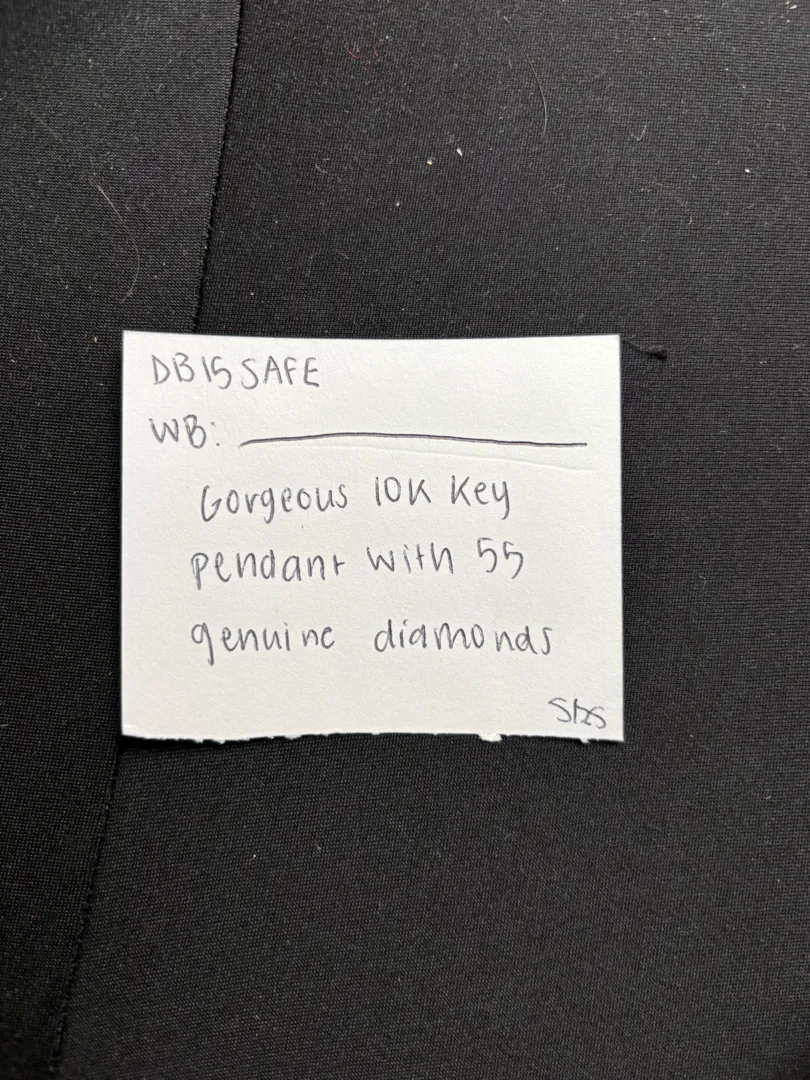 DB15 SAFE
WB:
Gorgeous 10K Key
pendant with 55
genuine diamonds